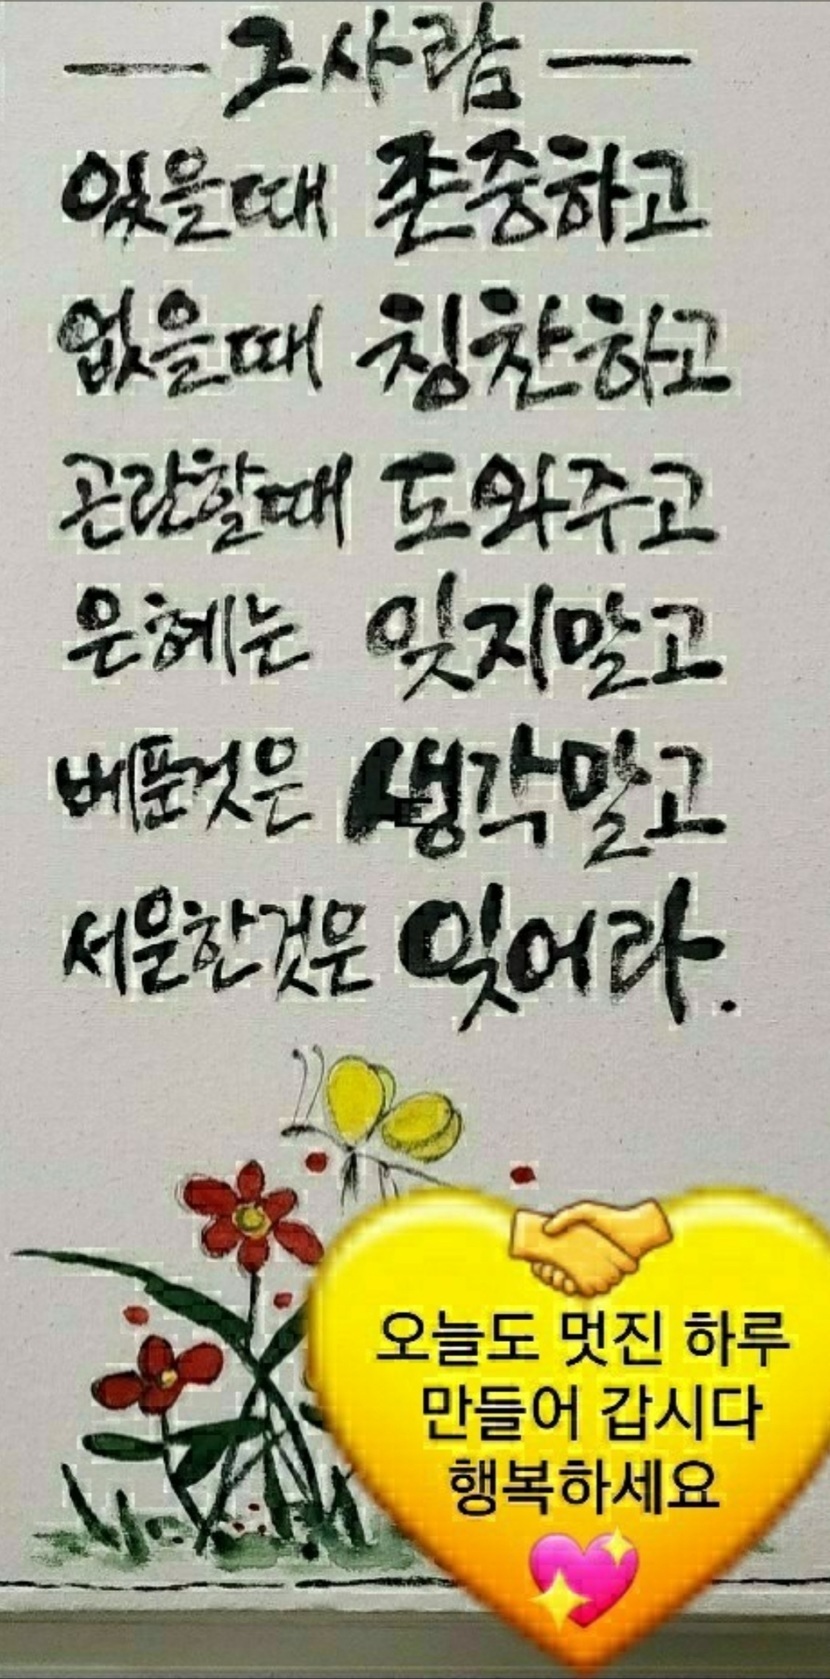 그사람
있을때 존중하고
없을때 칭찬하고
곤란할때 도와주고
은혜는 잊지말고
베푼것은 생각말고
서운한것은 잊어라.
오늘도 멋진 하루
만들어 갑시다
행복하세요